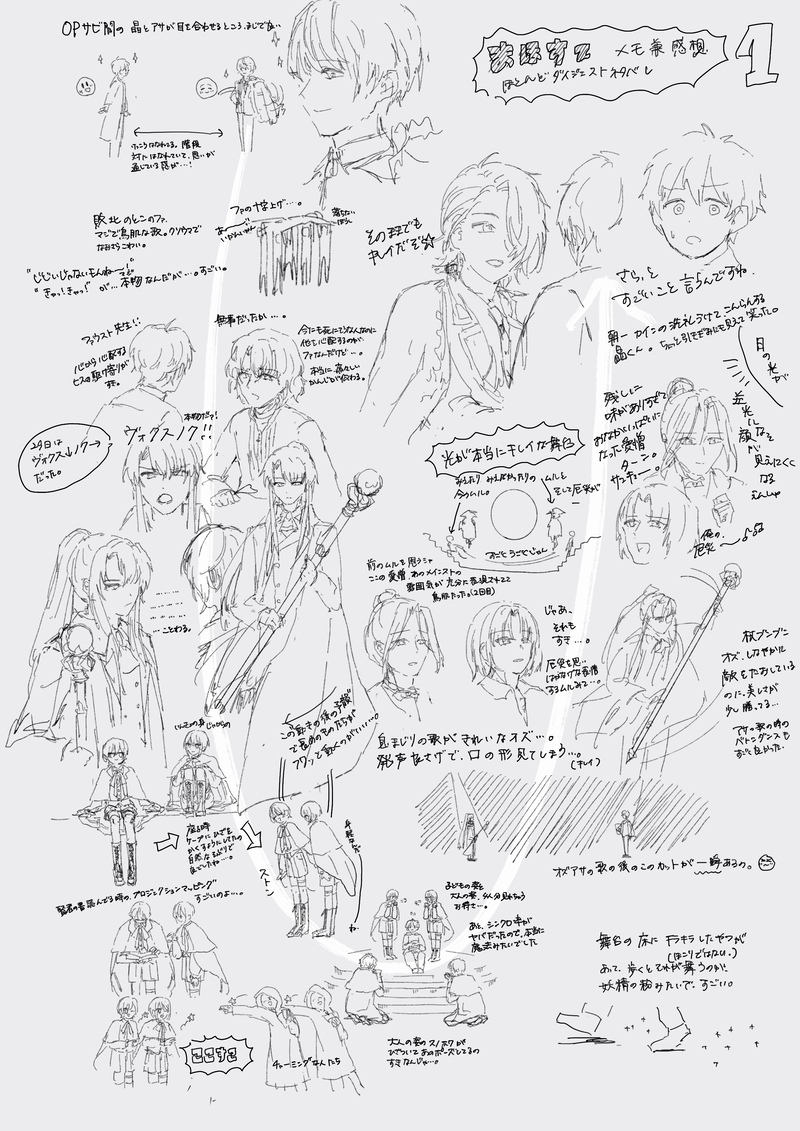 OPサビ間の 晶とアサが目を合わせるところ、まじでない
メモ兼感想
ほとんどダイジェストネタバレ
1
けっこうはなれてる。階段
対にはなれていて、思いが
通じている感が…!
敗北のとこのファ、
マジで鳥肌な歌。クソウマで
ファの十字上げ…。
"じじいじゃないもんねー"
"きゃっ!きゃっ!" が…本物なんだが…。すごい。
その理でも
キレイだぞ☆
さらっと
すごいこと言うんですね。
無事だったか…。
ファウスト先生!!
心から心配する
ヒスの駆け寄りが
今にも死にそうなんなのに
他を心配するのが
ファなんだけど…。
かんじが伝わる。
朝一 カインの洗礼うけて、こんらんする
晶くん。ちょっと引きぎみにも見えて笑った。
日の光が
逆光に
顔なぞ
が
見えにくく
なる
本物だァ!
ヴォクスノク!!
29日は
ヴォクス↓ノク→
だった。
残しに
味がありすぎて
おなかいっぱいに
なった愛憎
ターン。
サッキュー。
光が本当にキレイな舞台
今のムル。
ムルと
そして厄災が
前のムルを思うシャ
ここの愛憎、あのメインストの
雰囲気が充分に表現されてて
鳥肌たった。(2日目)
俺の、
厄災〜♪
…ことわる。
じゃあ、
それも
すき…。
厄災を思い
するムルみて…。
杖ブンブンに
オズ、しなやかに
敵をたおしている
のに、美しさが
少し勝ってる…
アサの歌の時の
バトンダンスも
すごく良かった。
この動きの後の予備
で長めのものたちが
フワッと動くのがいい…。
息まじりの歌がきれいなオズ…。
発声良さげで、口の形見てしまう…。
(キレイ)
座る時
ケープにひざを
かくすようにしてたの
自然なそぶりで
良きでしたね…。
ストン
オズアサの歌の後のこのカットが一瞬あるの。
賢者の書読んでる時の、プロジェクションマッピング
すごいのよ…。
子どもの姿を
大人の姿、4人分見れちゃう
お得さ…。
あと、シンクロ率が
ヤバだったので、本当に
魔法みたいでした
舞台の床にキラキラしたやつが
(ほこりではない。)
あって、歩くとそれが舞うのが、
妖精の粉みたいで、すごい。
ここすこ
チャーミングなんたち
大人の姿のスノホワが
ひざついてあのポーズとしてるの
すきなんじゃ…。